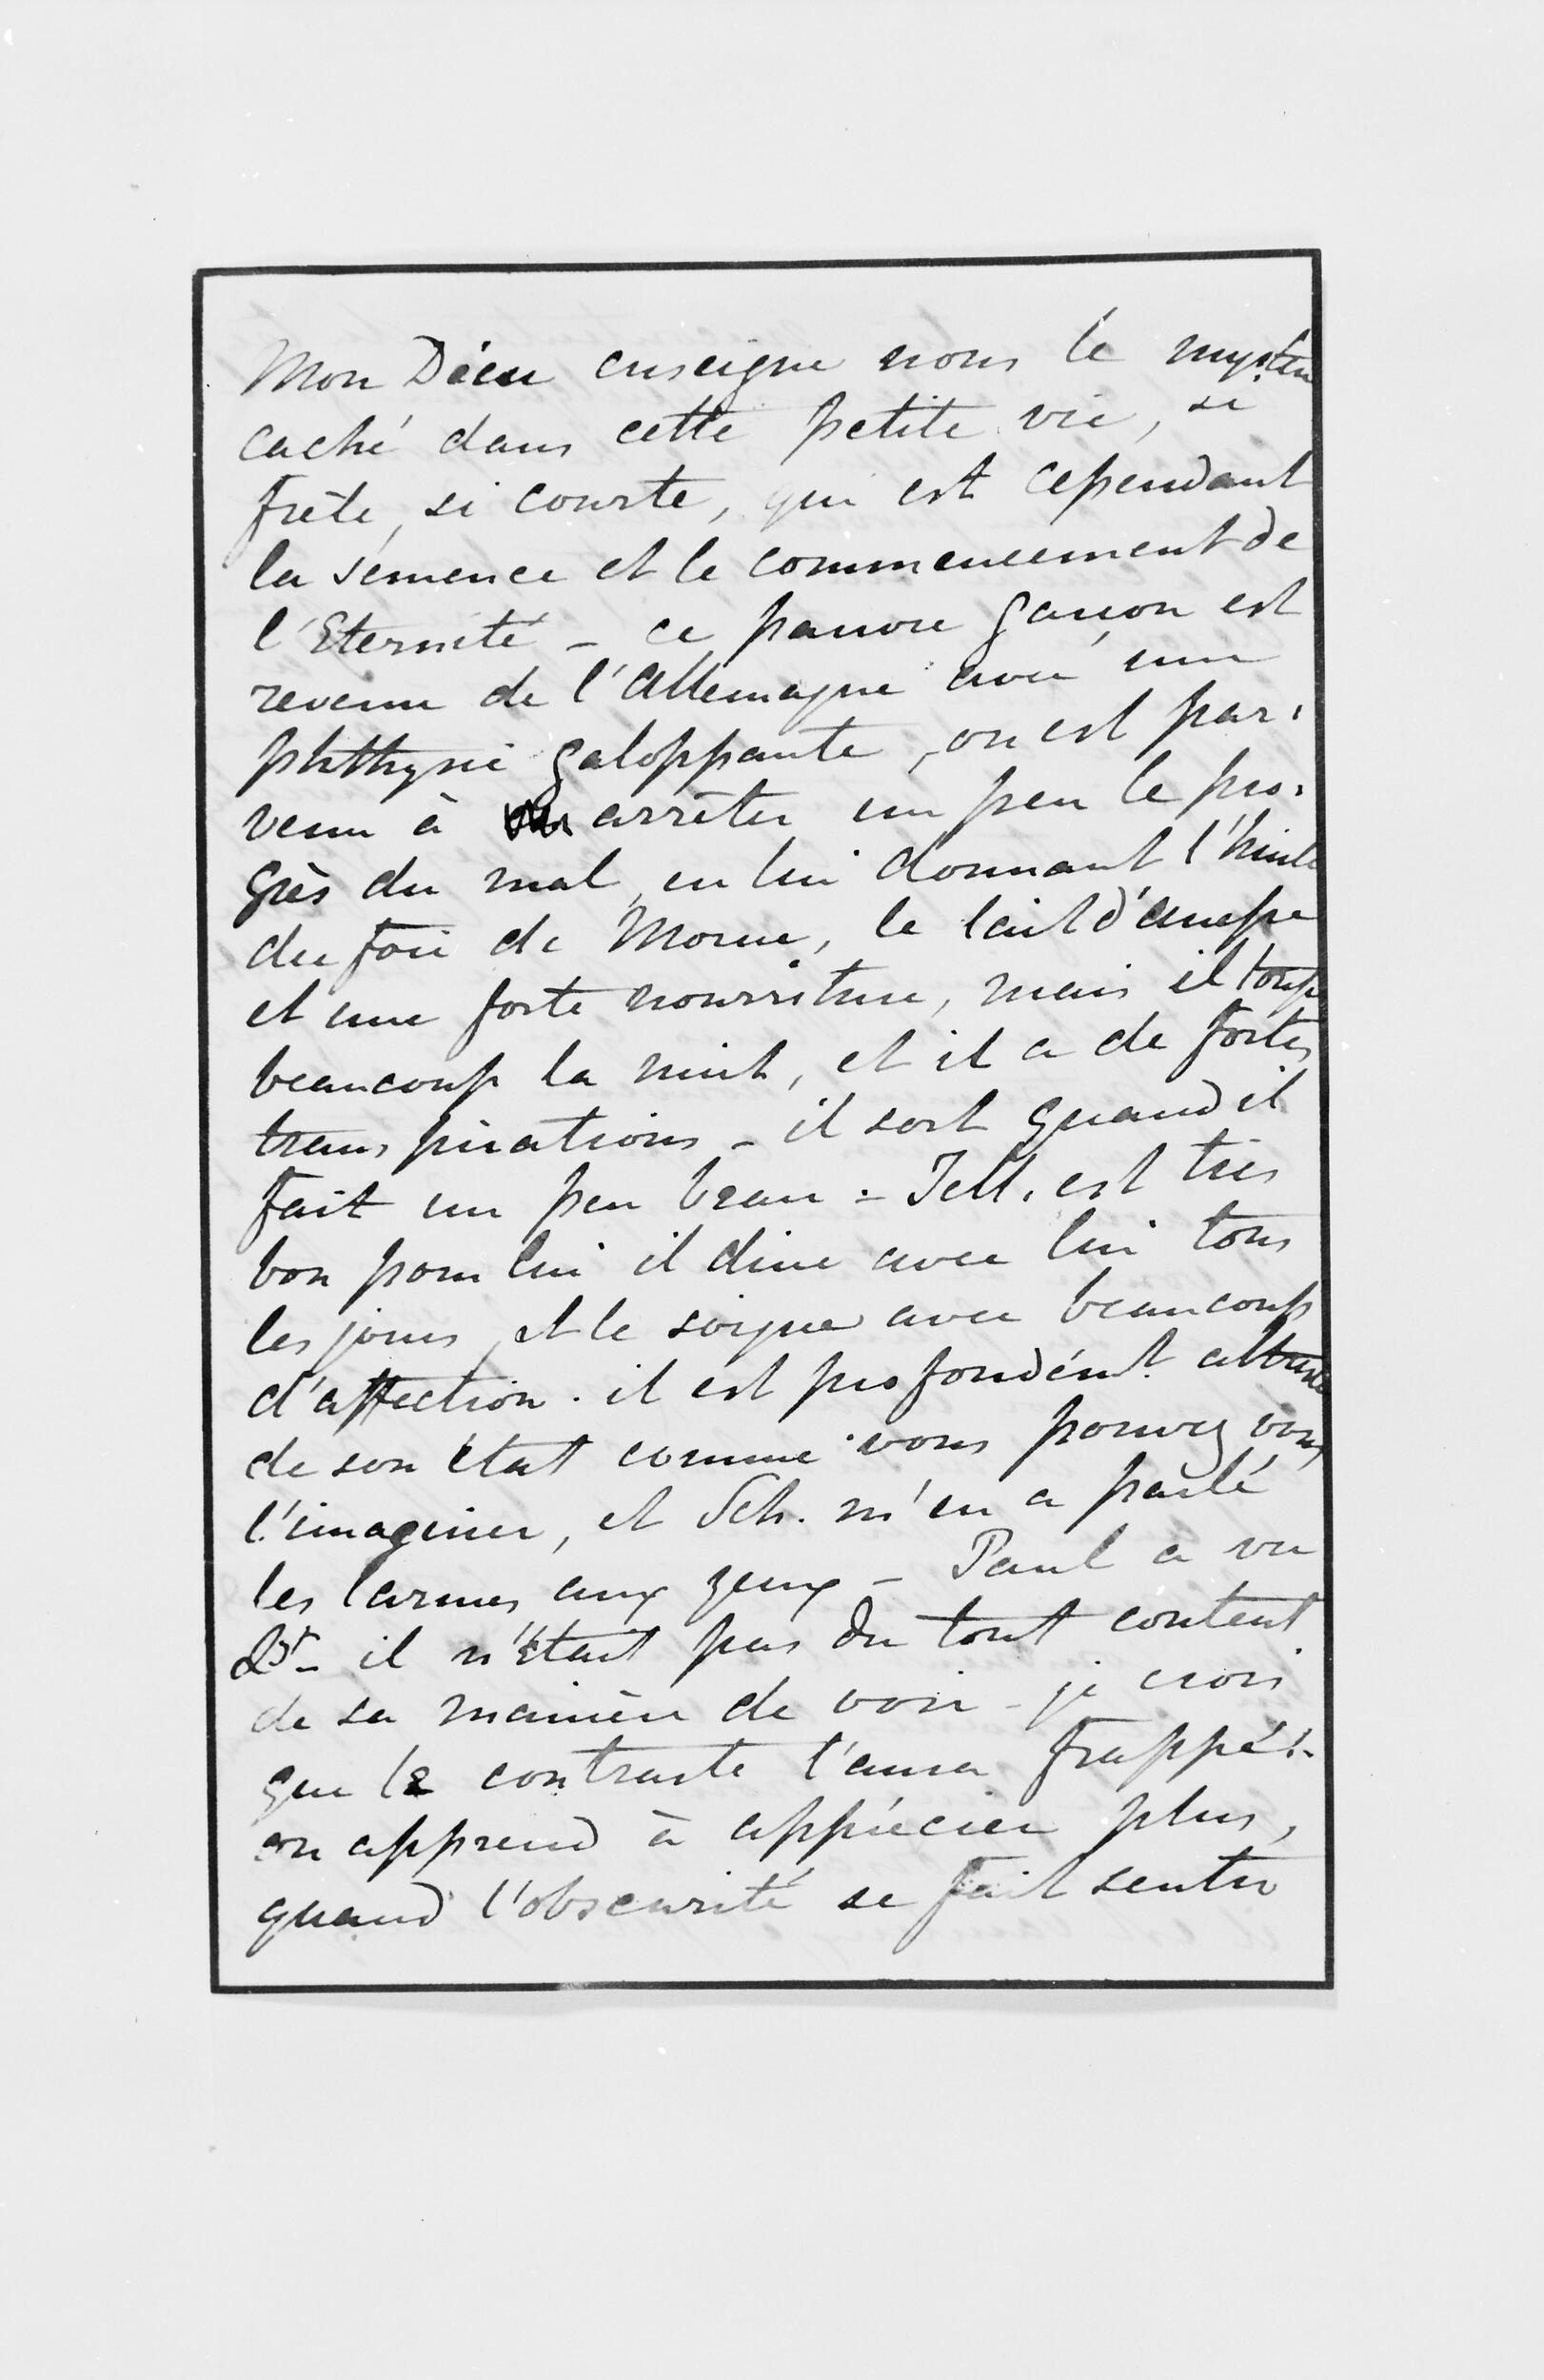 Mon Dieu enseigne nous le mystère
caché dans cette petite vie, si
frêle, si courte, qui est cependant
la semence et le commencement de
l'Eternité - ce pauvre garçon est
revenu de l'Allemagne avec une
phthysie galoppante, on est par-
venu à arrêter un peu le pro-
grès du mal, en lui donnant l'huile
du foie de Morue, le lait d'anesse
et une forte nourriture, mais il tousse
beaucoup la nuit, et il a de fortes
transpirations - il sort quand il
fait un peu beau - est très
bon pour lui il dine avec lui tous
les jours, et le soigne avec beaucoup
d'affection. il est profondémt. attristé
de son état comme vous pouvez vous
l'imaginer, et Sch. m'en a parlé
les larmes aux yeux - Paul a vu
il n'était pas du tout content
de sa manière de voir - je crois
que le contraste l'aura frappé! -
on apprend à apprécier plus,
quand l'obscurité se fait sentir